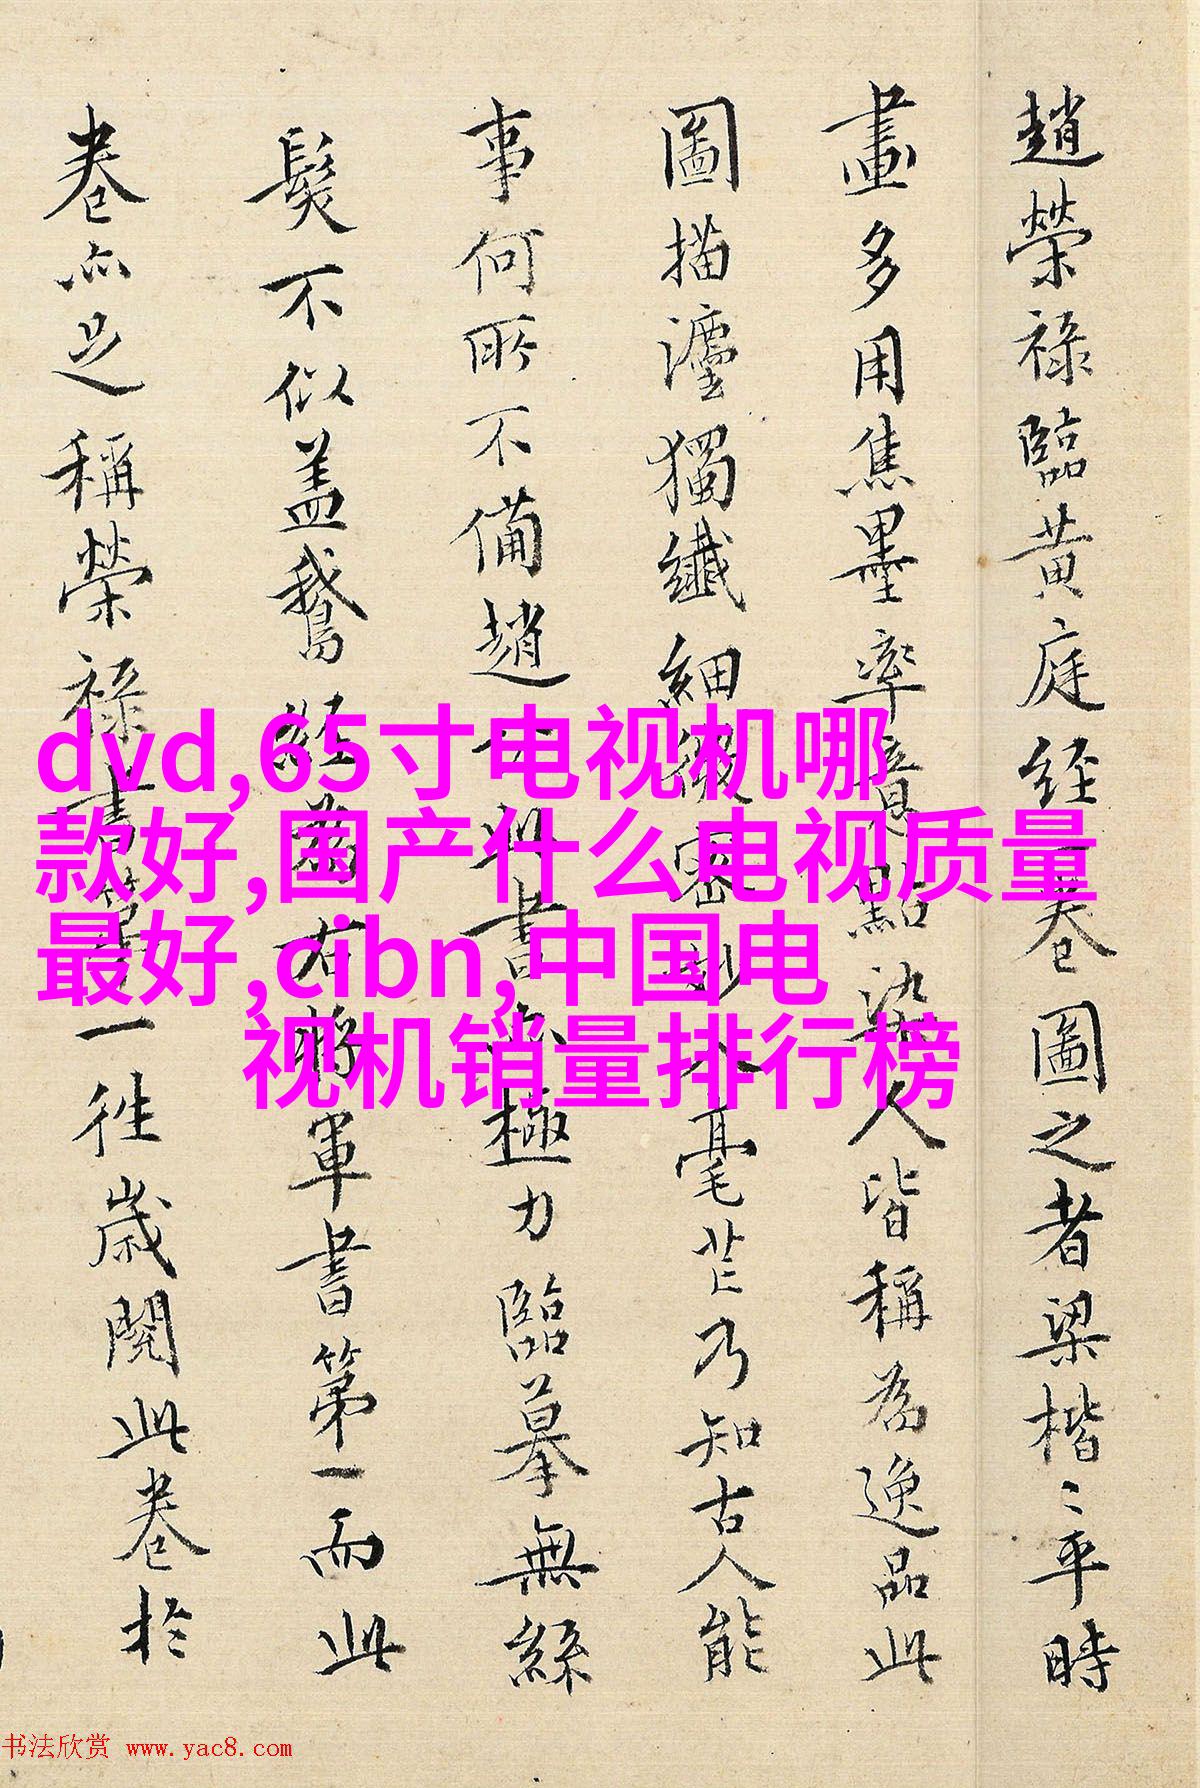 趙榮祿臨黄庭经一卷圖之者梁楷〻平時
畫多用焦墨率意點染人皆稱為逸品此
圖描瀍獨纖細緻密 入毫芒乃知古人能
事何所不備趙 此書亦極力臨摹無絲
髮不似盖鵞经為右將軍書第一而此
卷亦足稱榮祿書第一徃歳閱此卷於
dvd,65寸电视机哪
款好,国产什么电视质量
最好,cibn,中国电
视机销量排行榜
书法欣赏 www.yac8.com